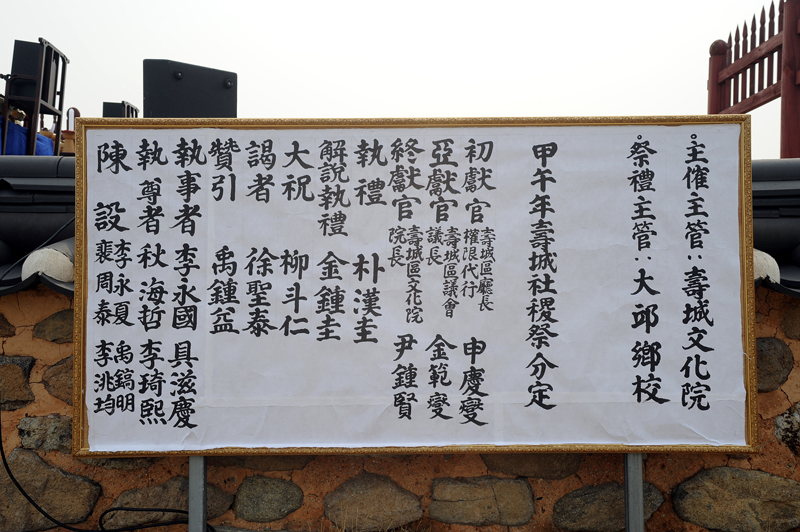 。主催主管:壽城文化院
。祭禮主管:大邱鄕校
甲午年壽城社稷祭分定
初獻官 壽城區廳長 權限代行 申慶燮
亞獻官 壽城區議會 議長 金範燮
終獻官 壽城區文化院 院長 尹鍾賢
執禮 朴漢圭
解說執禮 金鍾圭
大祝 柳斗仁
謁者 徐聖泰
贊引 禹鍾益
執事者 李永國 具滋慶
執尊者 秋海哲 李琦熙
陳設 李永夏 裵周泰 禹鎬明 李洮均